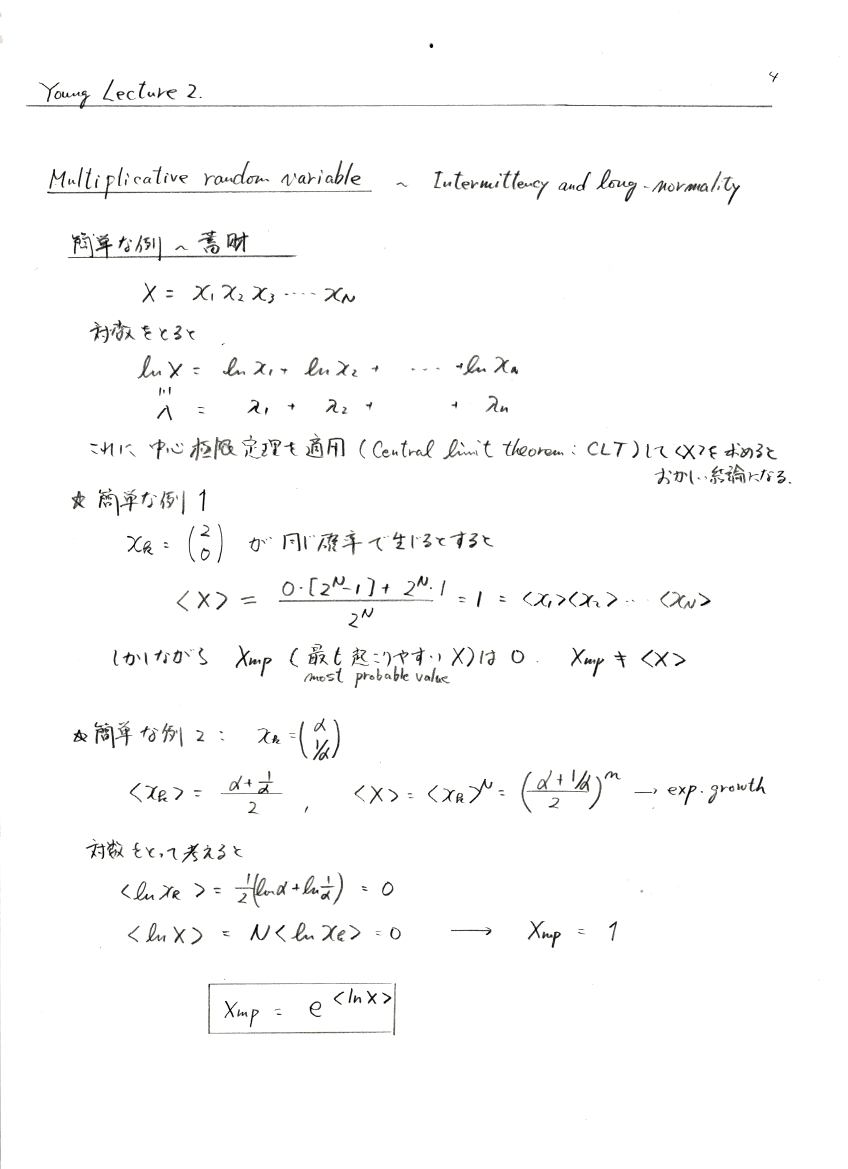 4
Young Lecture 2.
Multiplicative random variable ~ Intermittency and long-normality
簡単な例 ~ 蓄財
X = x₁ x₂ x₃ ---- x_N
対数をとると
ln X = ln x₁ + ln x₂ + --- + ln x_n
|||
Λ = λ₁ + λ₂ + + λ_n
これに 中心極限定理を適用 (Central limit theorem : CLT) して <X>を求めると
おかしい結論になる.
☆ 簡単な例 1
x_k = (2 0) が 同じ確率で生じるとすると
<X> = (0·[2^N-1] + 2^N·1)/2^N = 1 = <x₁><x₂>-- <x_N>
しかしながら Xmp (最も起こりやすい X)は 0. Xmp ≠ <X>
most probable value
☆ 簡単な例 2 : x_k = (α 1/α)
<x_k> = (α + 1/α)/2 , <X> = <x_k>^N = ((α + 1/α)/2)^n → exp. growth
対数をとって考えると
<ln x_k> = 1/2(ln α + ln 1/α) = 0
<ln X> = N<ln x_k> = 0 → Xmp = 1
Xmp = e^<ln X>